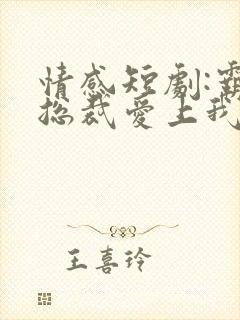 情感短劇:霸
總裁愛上我
王喜玲